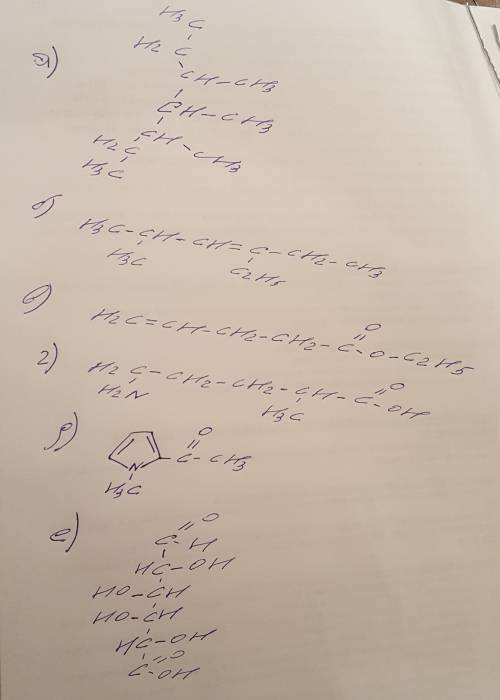 а)
H3C
H2C
CH-CH3
CH-CH3
CH-CH3
H2C
H3C
б)
H3C-CH-CH=C-CH2-CH3
H3C C2H5
в)
O
H2C=CH-CH2-CH2-C-O-C2H5
г)
O
H2C-CH2-CH2-CH-C-OH
H2N H3C
д)
O
N C-CH3
H3C
е)
O
C-H
HC-OH
HO-CH
HO-CH
HC-OH
O
C-OH